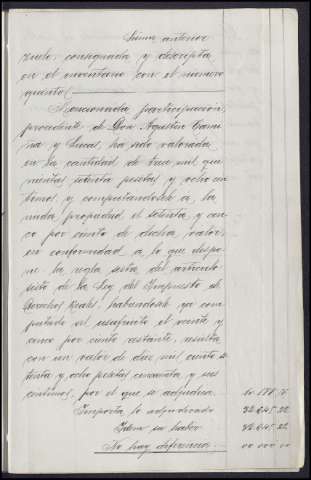 Suma anterior
zuelo; consignada y descripta
en el inventario con el número
quinto.
Mencionada participación,
procedente de Don Agustín
y Lucas, ha sido valorada
en la cantidad de trece mil qui
nientas setenta pesetas y ocho cén
timos y computandosele a la
nuda propiedad el setenta y cin
co por ciento de dicho valor,
en conformidad a lo que dispo
ne la regla sesta del artículo
sesto de la Ley del Impuesto de
Derechos Reales, habiendosele ya com
putado al usufructo el veinte y
cinco por ciento restante, resulta
con un valor de diez mil ciento se
tenta y ocho pesetas cincuenta y seis
céntimos, por el que se adjudica.
Importa lo adjudicado
Idem su haber
No hay diferencia